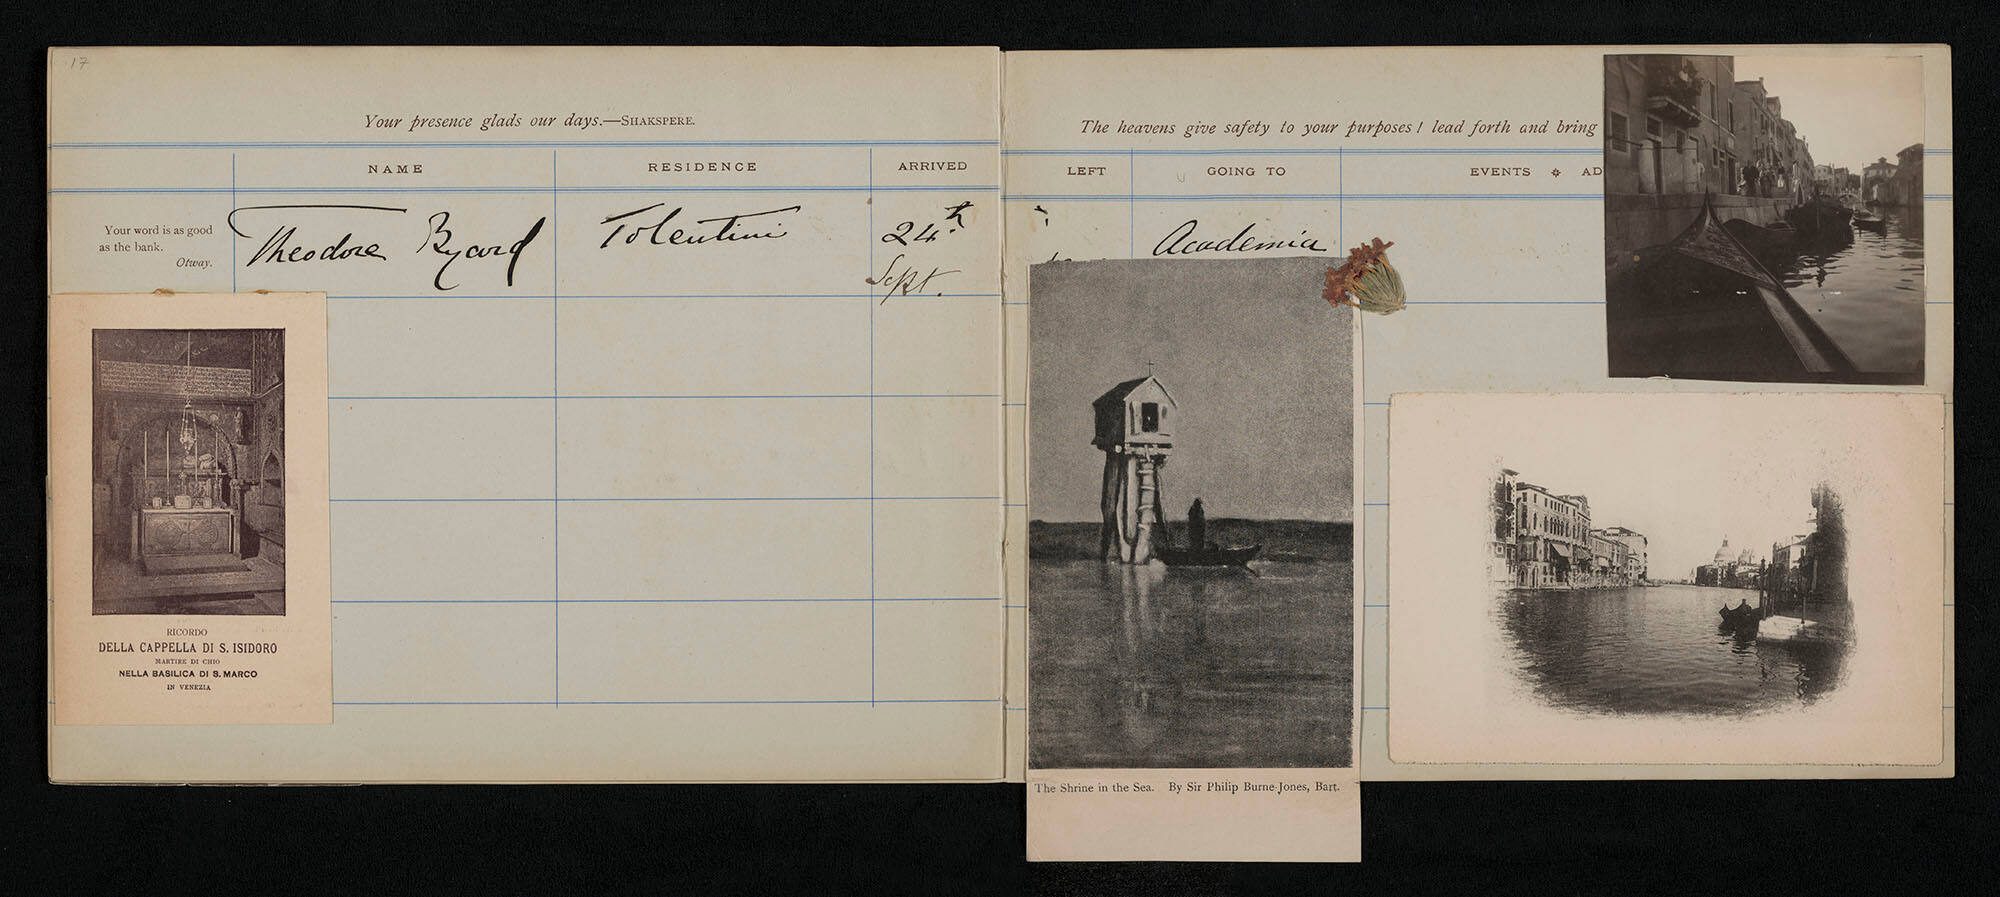 17
Your presence glads our days.—SHAKSPERE.
NAME RESIDENCE ARRIVED
Your word is as good
as the bank.
Otway.
Theodore Byard Tolentini 24th
Sept.
RICORDO
DELLA CAPPELLA DI S. ISIDORO
MARTIRE DI CHIO
NELLA BASILICA DI S. MARCO
IN VENEZIA
The heavens give safety to your purposes! lead forth and bring
LEFT GOING TO EVENTS AD
Academia
The Shrine in the Sea. By Sir Philip Burne-Jones, Bart.